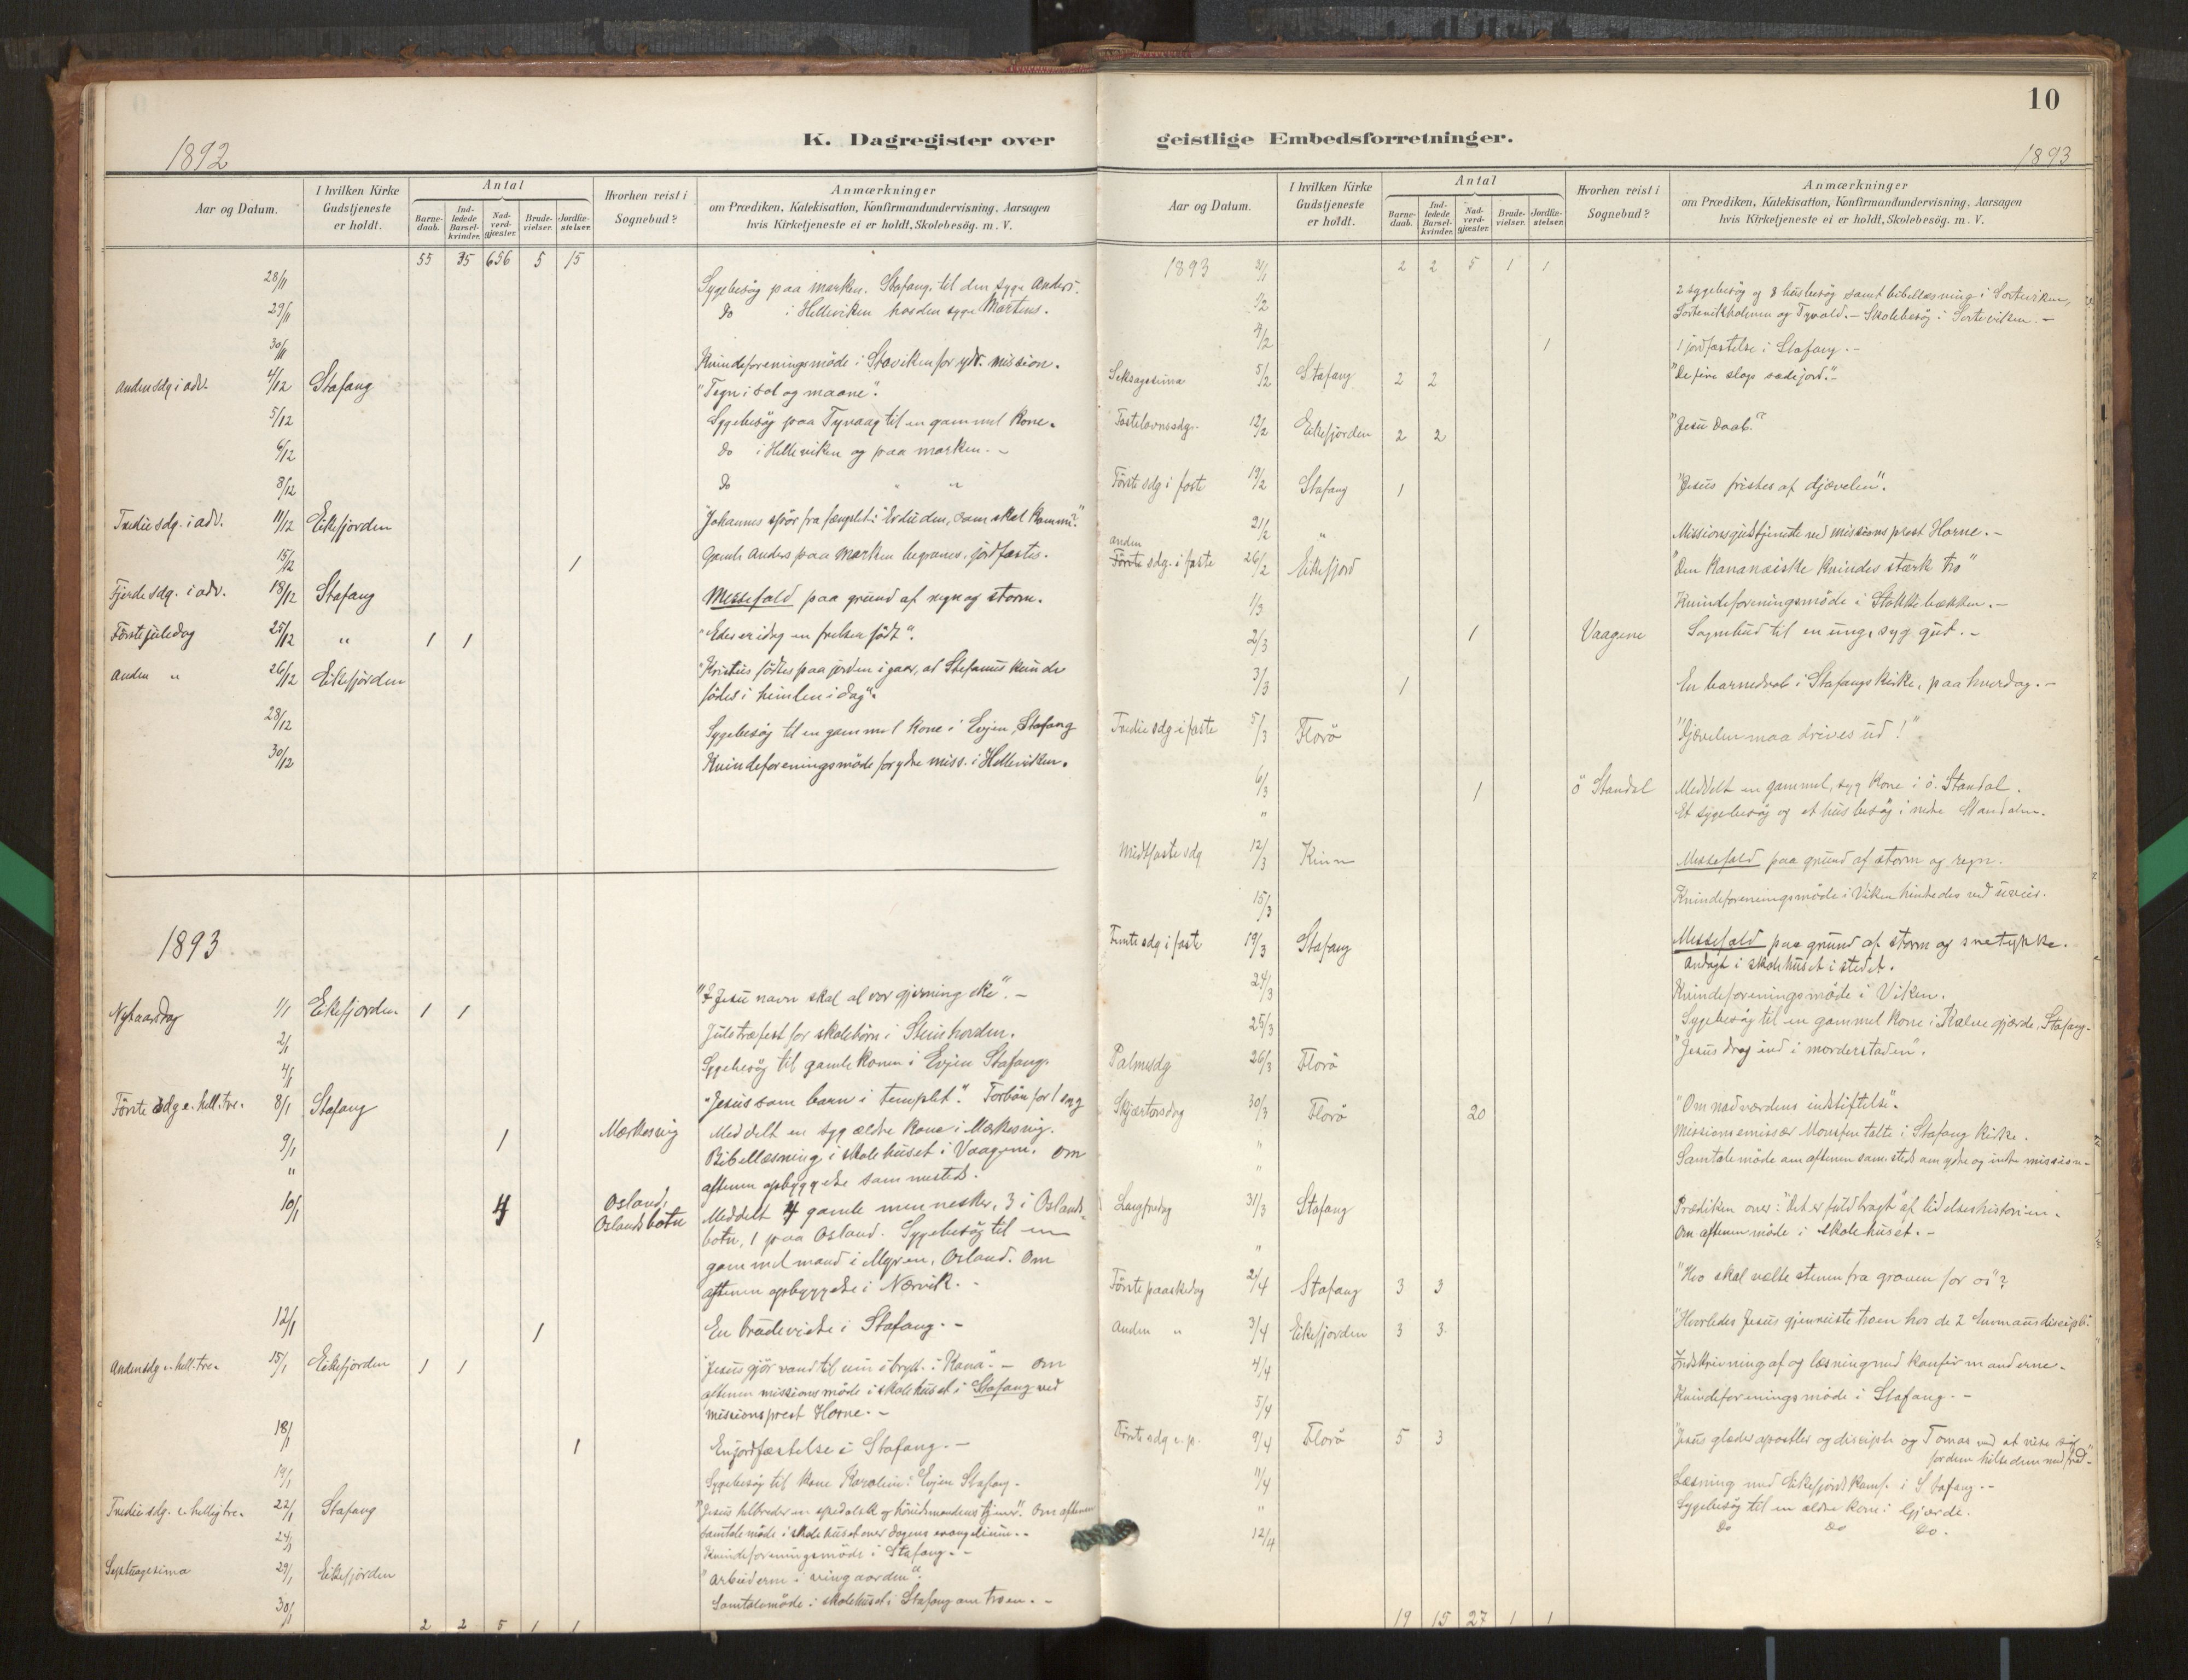 10
K. Dagregister over geistlige Embedsforretninger.
1892
1893
Aar og Datum.
I hvilken Kirke Gudstjeneste er holdt.
Antal
Barne-daab.
Ind-ledede Barsel-kvinder.
Nad-verd-gjæster.
Brude-vielser.
Jordfæ-stelser.
Hvorhen reist i Sognebud?
Anmærkninger
om Prædiken, Katekisation, Konfirmandundervisning, Aarsagen
hvis Kirketjeneste ei er holdt, Skolebesög. m. V.
55 35 656 5 15
28/11 Sygebesög paa marken. Stafang, til den syge Anders.
29/11 Do i Helleviken hos den syge Martens.
30/11 Kvindeforeningsmöde i Staviken for ydr. mission.
Anden sdg i adv. 4/12 Stafang "Tegn i sol og maane".
5/12 Sygebesög paa Tyvaag til en gammel kone.
6/12 Do i Helleviken og paa marken. -
8/12 Do " "
Tredie sdg. i adv. 11/12 Eikefjorden "Johannes spör fra fængslet: "Er du den, som skal komme".
15/12 1 Gamle Anders paa Marken begraves, jordfæstes.
Fjerde sdg. i adv. 18/12 Stafang Messefald paa grund af regn og storm.
Förste juledag 25/12 " 1 1 "Eder er idag en frelser födt".
Anden " 26/12 Eikefjorden "Kristus födtes paa jorden igaar, at Stefanus kunde
födes i himlen idag".
28/12 Sygebesög til en gammel kone i Evjen, Stafang
30/12 Kvindeforeningsmöde for ydre miss. i Helleviken.
1893
Nytaarsdag 1/1 Eikefjorden 1 1 "I Jesu navn skal al vor gjerning ske". -
2/1 Juletræfest for skolebörn i Steinhovden.
4/1 Sygebesög til gamle konen i Evjen Stafang.
Förste sdg e. hell. tre. 8/1 Stafang "Jesus som barn i templet". Forbön for 1 syg
9/1 1 Markesvig Meddelt en syg ældre kone i Markesvig.
" Bibellæsning i skolehuset i Vaagene. Om
aftenen opbyggelse sammesteds.
10/1 4 Osland, Oslandsbotn Meddelt 4 gamle mennesker, 3 i Oslands-
botn, 1 paa Osland. Sygebesög til en
gammel mand i Myren, Osland. Om
aftenen opbyggelse i Nærvik. -
12/1 1 En brudevielse i Stafang. -
Anden sdg e. hell. tre. 15/1 Eikefjorden 1 1 "Jesus gjör vand til vin i bryll. i Kana". - Om
aftenen missionsmöde i skolehuset i Stafang ved
missionsprest Horne. -
18/1 1 En jordfæstelse i Stafang. -
19/1 Sygebesög til kone Karoline i Evjen Stafang. -
Tredie sdg. e. hellig tre. 22/1 Stafang "Jesus helbreder en spedalsk og hövidsmandens tjener". Om aftenen
samtalemöde i skolehuset over dagens evangelium. -
24/1 Kvindeforeningsmöde i Stafang. -
Septuagesima 29/1 Eikefjorden "Arbeiderne i vingaarden".
30/1 Samtalemöde i skolehuset i Stafang om troen. -
2 2 5 1 1
Aar og Datum.
I hvilken Kirke Gudstjeneste er holdt.
Antal
Barne-daab.
Ind-ledede Barsel-kvinder.
Nad-verd-gjæster.
Brude-vielser.
Jordfæ-stelser.
Hvorhen reist i Sognebud?
Anmærkninger
om Prædiken, Katekisation, Konfirmandundervisning, Aarsagen
hvis Kirketjeneste ei er holdt, Skolebesög. m. V.
1893 2 2 5 1 1
1/2 2 sygebesög og 8 husbesög samt bibellæsning i Sorteviken,
Sortevikholmen og Tyvold. - Skolebesög i Sorteviken. -
4/2 1 1 jordfæstelse i Stafang. -
Seksagesima 5/2 Stafang 2 2 "De fire slags sædejord". -
Fastelavnssdg. 12/2 Eikefjorden 2 2 "Jesu Daab."
Förste sdg i faste 19/2 Stafang 1 "Jesus fristes af djævelen".
21/2 " Missionsgudstjeneste ved missionsprest Horne. -
Anden sdg. i faste 26/2 Eikefjord "Den kananæiske kvindes stærke tro"
1/3 Kvindeforeningsmöde i Stokkebækken. -
2/3 1 Vaagene Sognebud til en ung, syg gut. -
3/3 1 En barnedaab i Stafangs kirke, paa hverdag. -
Tredie sdg i faste 5/3 Florö "Djævelen maa drives ud!"
6/3 1 ö Standal Meddelt en gammel, syg kone i ö. Standal.
" Et sygebesög og et husbesög i nedre Standalen.
Midtfaste sdg 12/3 Kinn Messefald paa grund af storm og regn.
15/3 Kvindeforeningsmöde i Viken hindredes ved uveir.
Femte sdg i faste 19/3 Stafang Messefald paa grund af storm og snetykke.
Andagt i skolehuset istedet.
24/3 Kvindeforeningsmöde i Viken.
25/3 Sygebesög til en gammel kone i Kalvegjærde, Stafang.
Palmesdg 26/3 Florö "Jesus drog ind i morderstaden".
Skjærtorsdag 30/3 Florö 20 "Om nadverdens indstiftelse".
" Missionsemissær Monsen talte i Stafang kirke.
" Samtalemöde om aftenen sam. steds om ydre og indre mission -
Langfredag 31/3 Stafang Prædiken over: "Det er fuldbragt" af lidelseshistorien.
" Om aftenen möde i skolehuset. -
Förste paaskedag 2/4 Stafang 3 3 "Hvo skal vælte stenen fra graven for os"?
Anden " 3/4 Eikefjorden 3 3 "Hvorledes Jesus gjenreiste troen hos de 2 Emmausdiscipl."
4/4 Indskrivning af og læsning med konfirmanderne.
5/4 Kvindeforeningsmöde i Stafang. -
Förste sdg e. p. 9/4 Florö 5 3 "Jesus glæder apostler og disciple og Tomas ved at vise sig
for dem hilse dem med fred".
11/4 Læsning med Eikefjordkonf. i Stafang. -
" Sygebesög til en ældre kone i Gjærde.
12/4 Do Do Do.
19 15 27 1 1